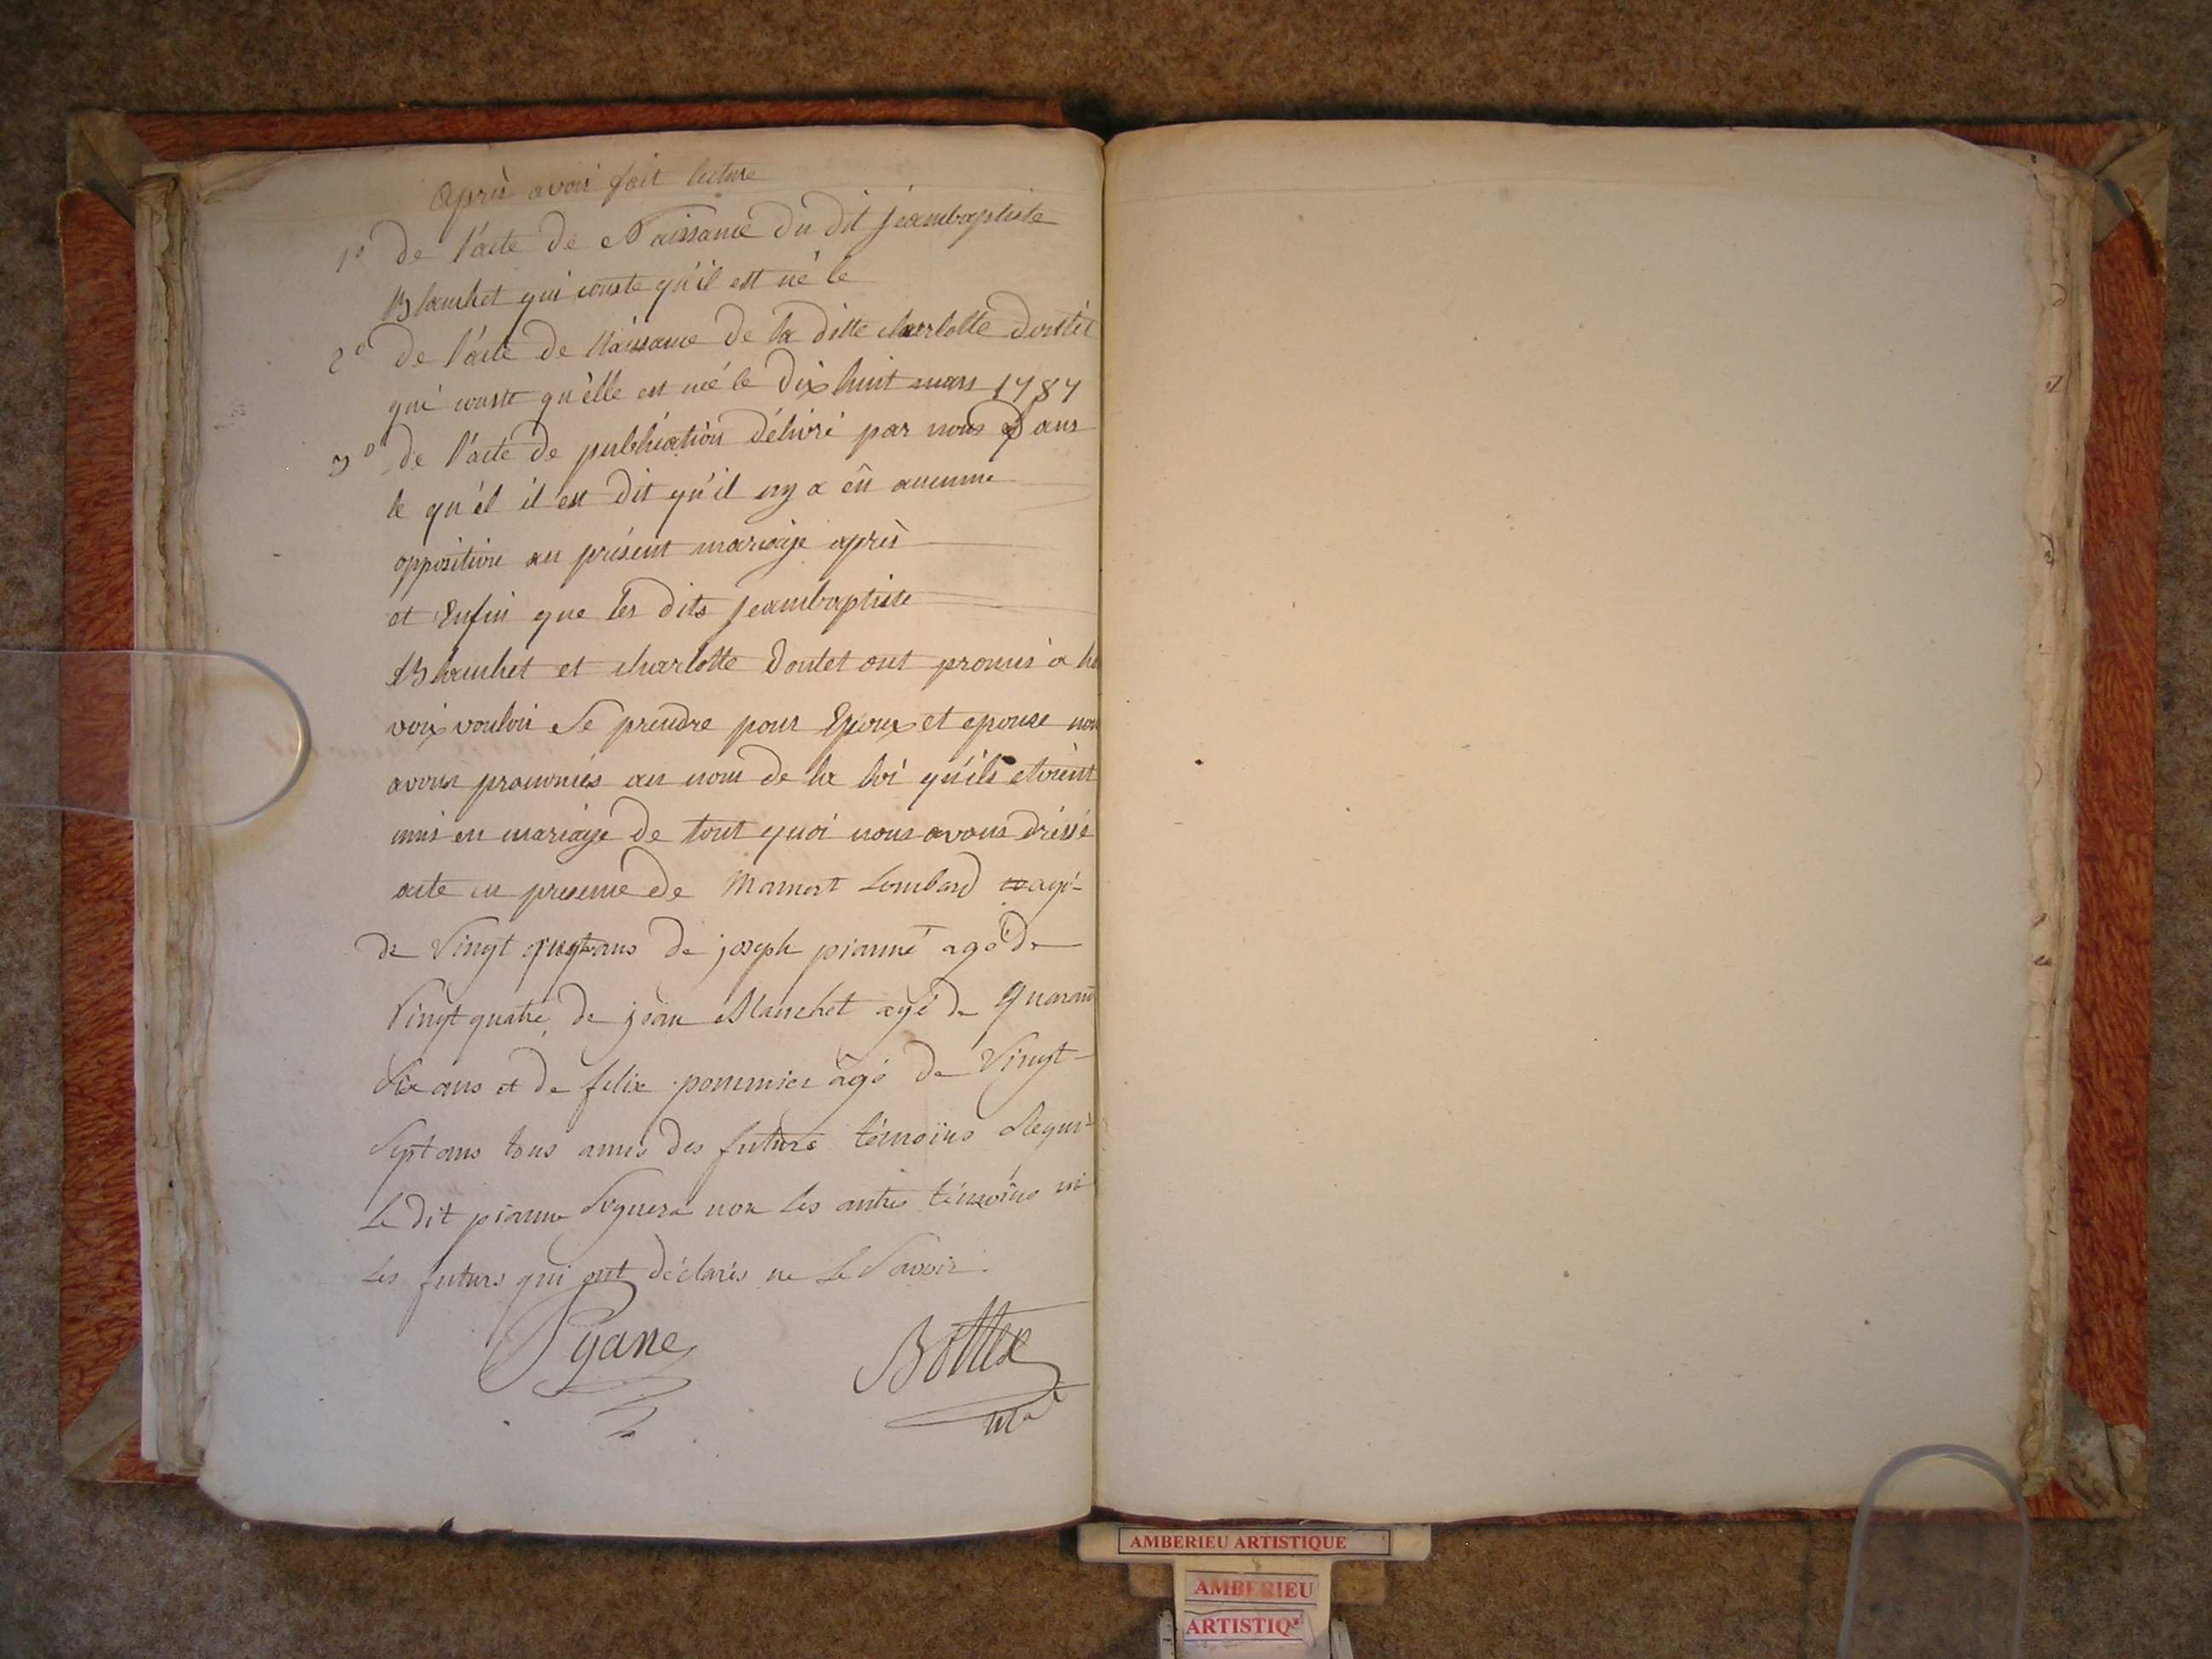 Après avoir fait lecture
1º de l'acte de Naissance du dit jeambaptiste
Blanchet qui conste qu'il est né le
2º de l'acte de Naissance de la ditte charlotte doutet
qui conste qu'elle est neé le dix huit mars 1787
3º de l'acte de publication délivré par nous dans
le qu'él il est dit qu'il ny a eû aucunne
opposition au présent mariage après
et Enfin que les dits jeambaptiste
Blanchet et charlotte doutet ont promis a
voix vouloir se prendre pour Epoux et epouse
avons prononcés au nom de la loi qu'ils etoient
unis en mariage de tout quoi nous avons dréssé
acte en presence de Mamert Lombard agé
de Vingt ans de joseph pianné agé de
Vingt quatre de jean Blanchet agé de Quarant
Six ans et de felix pommier agé de Vingt
Sept ans tous amis des futurs témoins Requi
Le dit pianne Signera non les autres témoins ni
Les futurs qui ont déclarés ne Le Savoir.
Pyane
Bottex
AMBERIEU ARTISTIQUE
AMBERIEU
ARTISTIQ